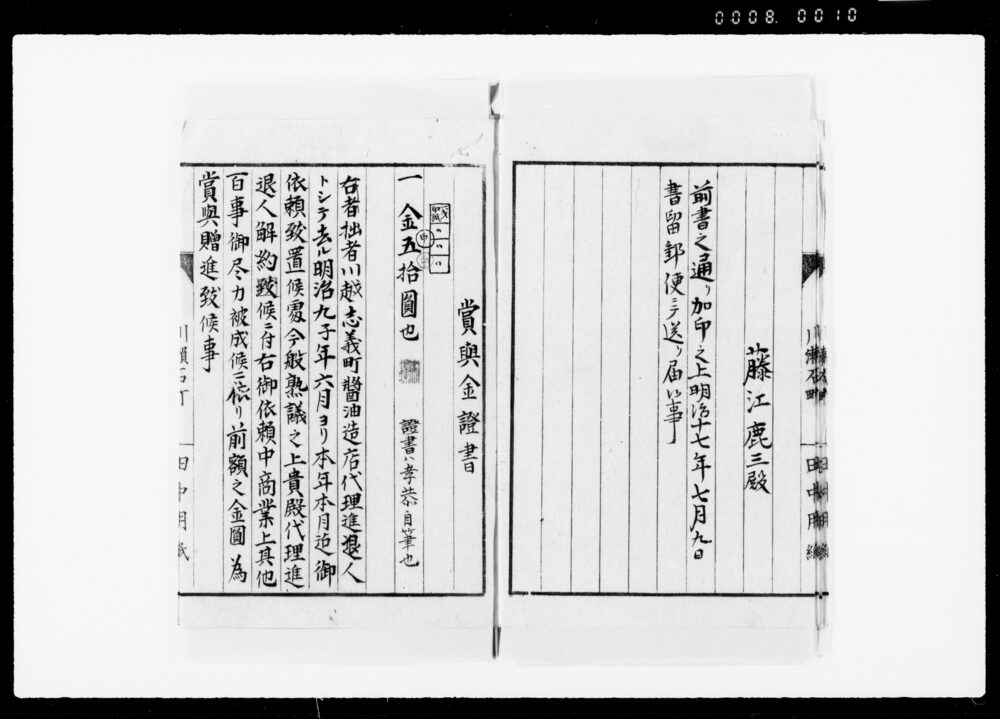 0008. 0010
藤江鹿三殿
前書之通リ加印之上明治十七年七月九日
書留郵便ニテ送リ届候事
田中用紙
賞與金證書
一金五拾圓也
證書ハ孝恭自筆也
右者拙者川越志義町醬油造店代理進退人
トシテ去ル明治九子年六月ヨリ本年本月迄御
依頼致置候處今般熟議之上貴殿代理進
退人解約致候ニ付右御依頼中商業上其他
百事御尽力被成候ニ依リ前額之金圓為
賞與贈進致候事
田中用紙